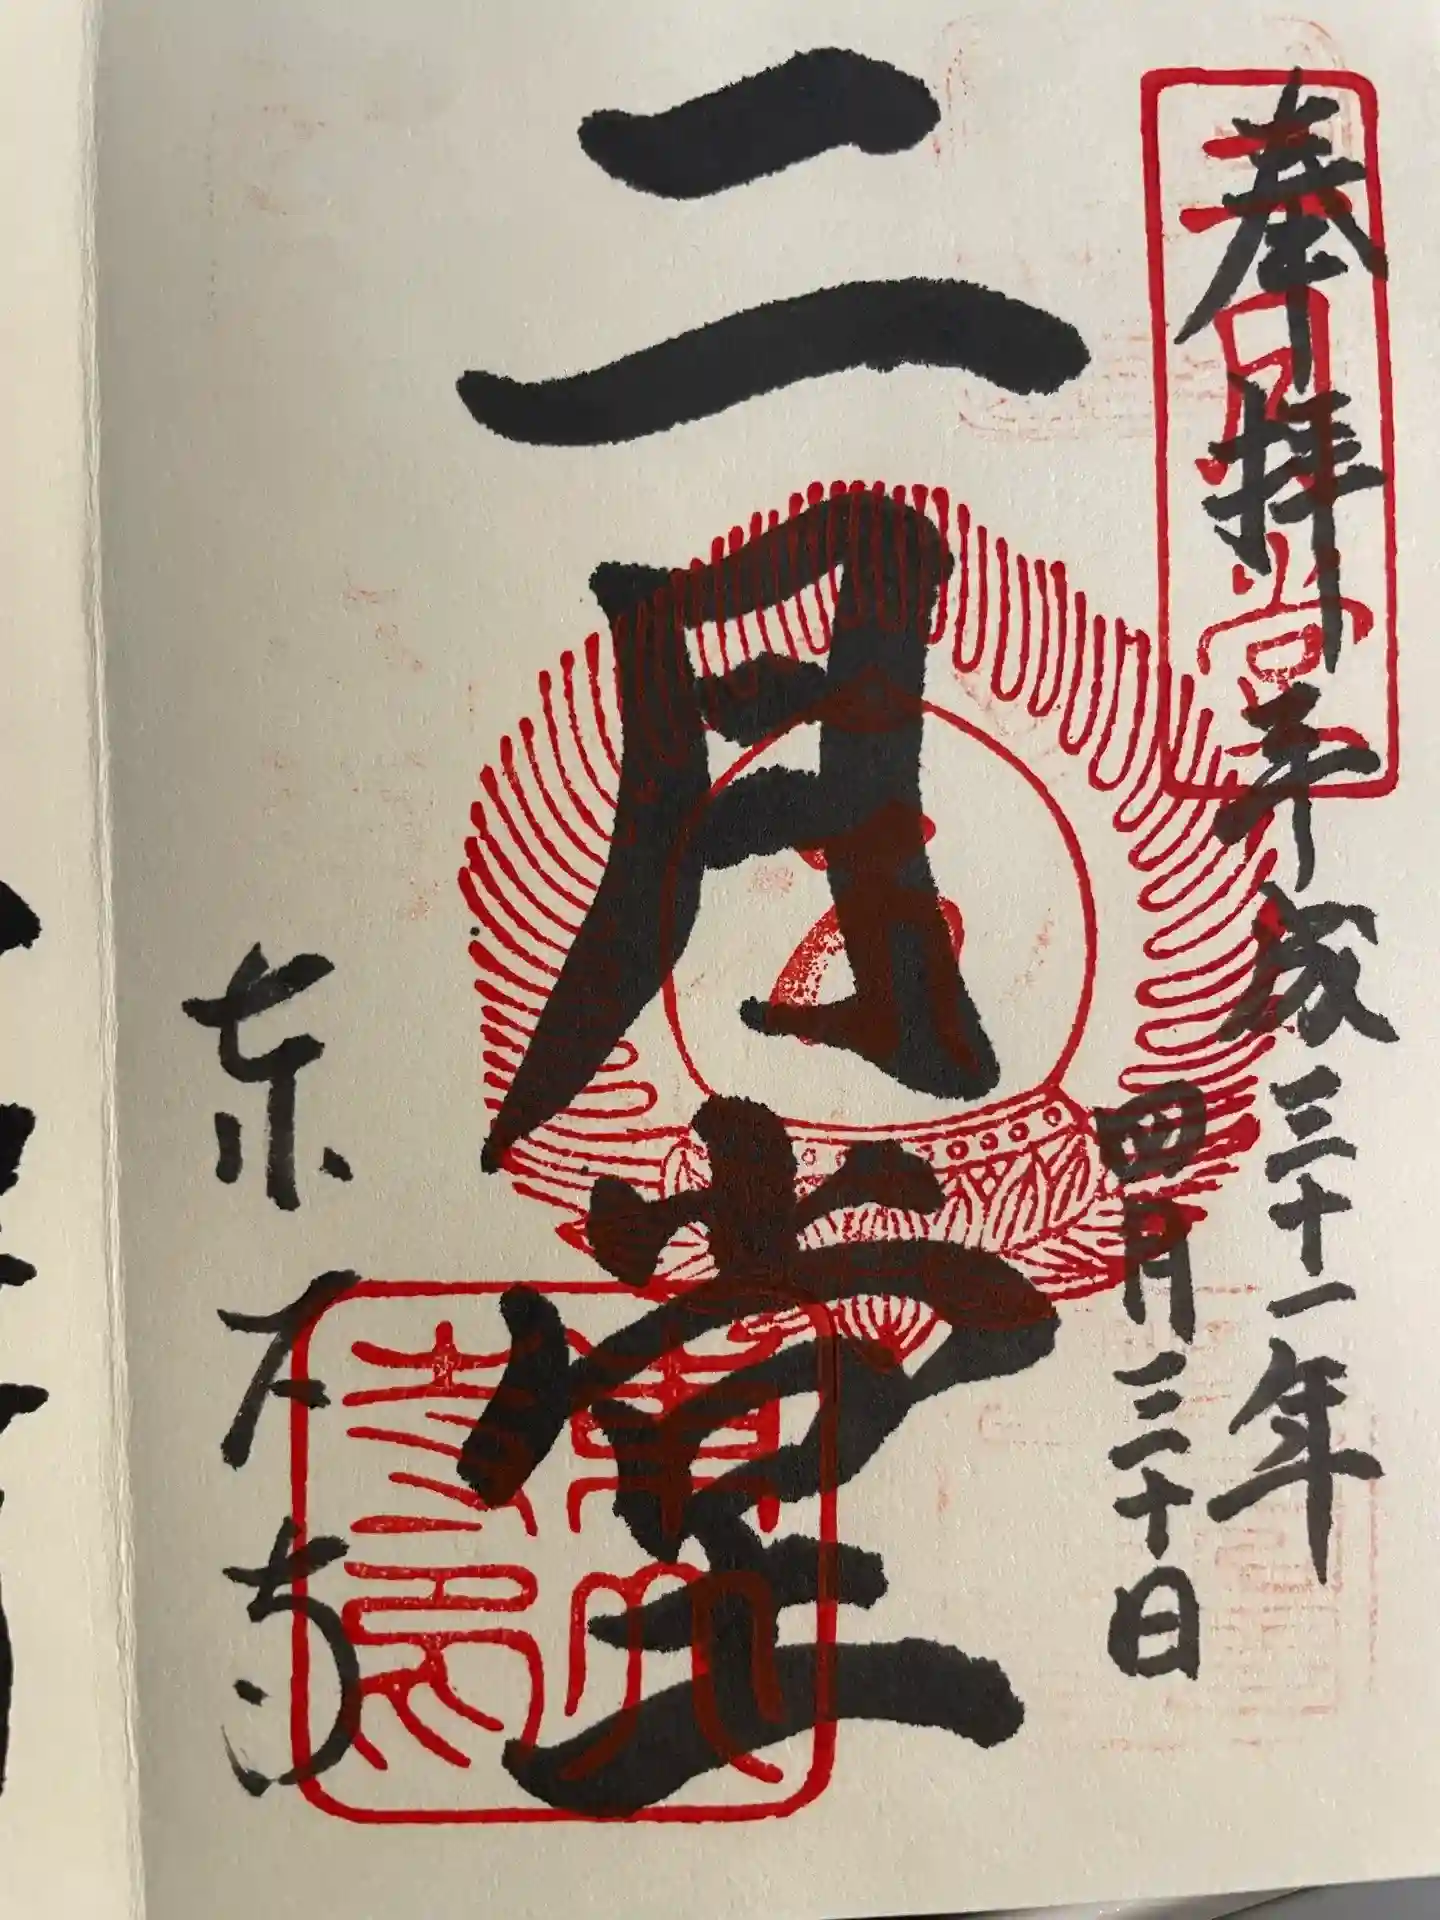 奉拝 平成三十一年
四月三十日
二月堂
二月堂
東大寺